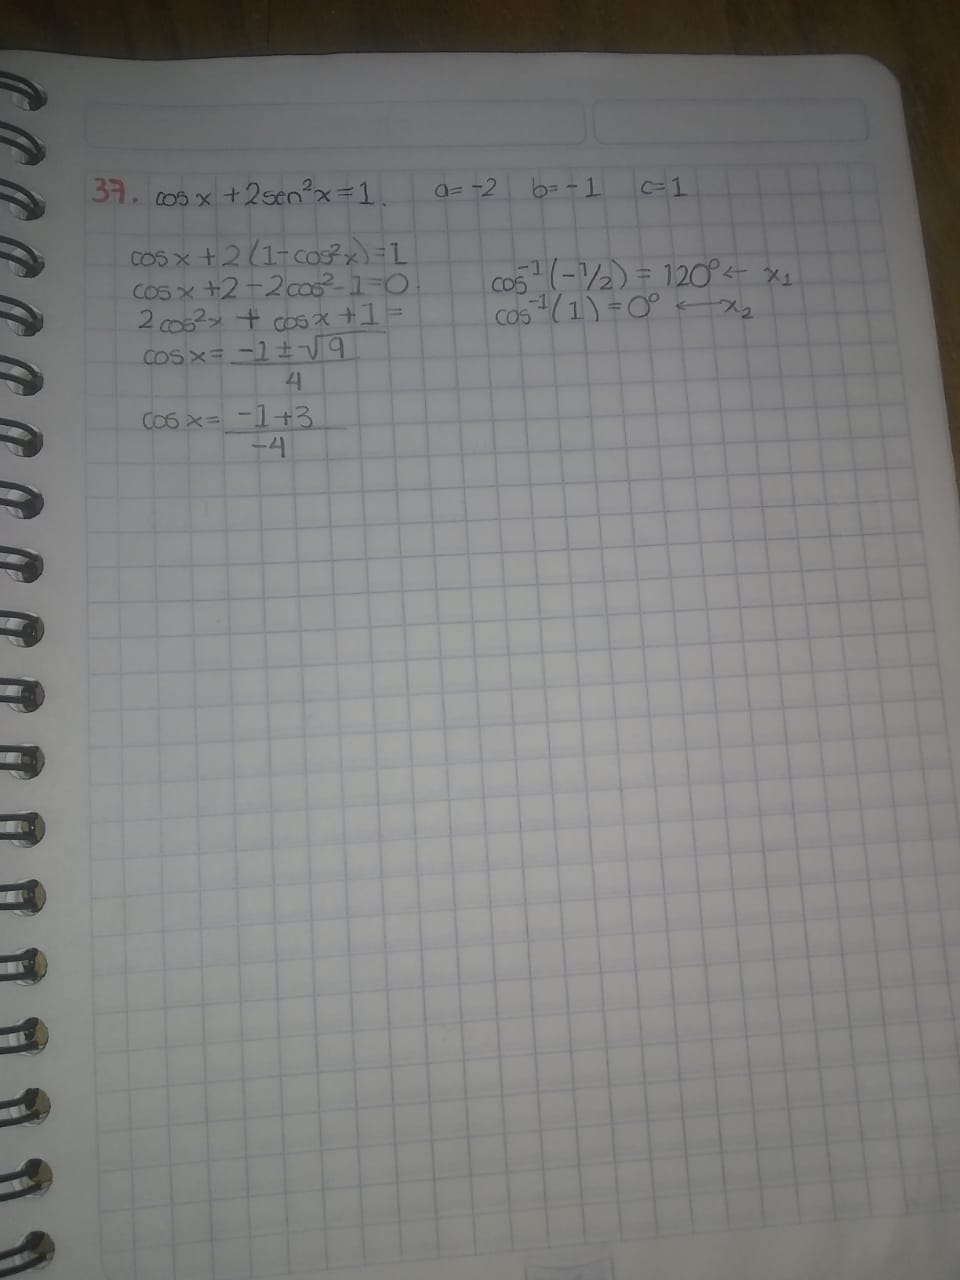 37. cos x + 2sen²x = 1. a= -2 b= -1 c=1
cos x + 2 (1 - cos²x) = 1
cos x + 2 - 2cos² - 1 = 0
2cos²x + cos x + 1 =
cos x = -1 ± √9
4
cos x = -1 + 3
-4
cos⁻¹(-1/2) = 120° ← x₁
cos⁻¹(1) = 0° ← x₂